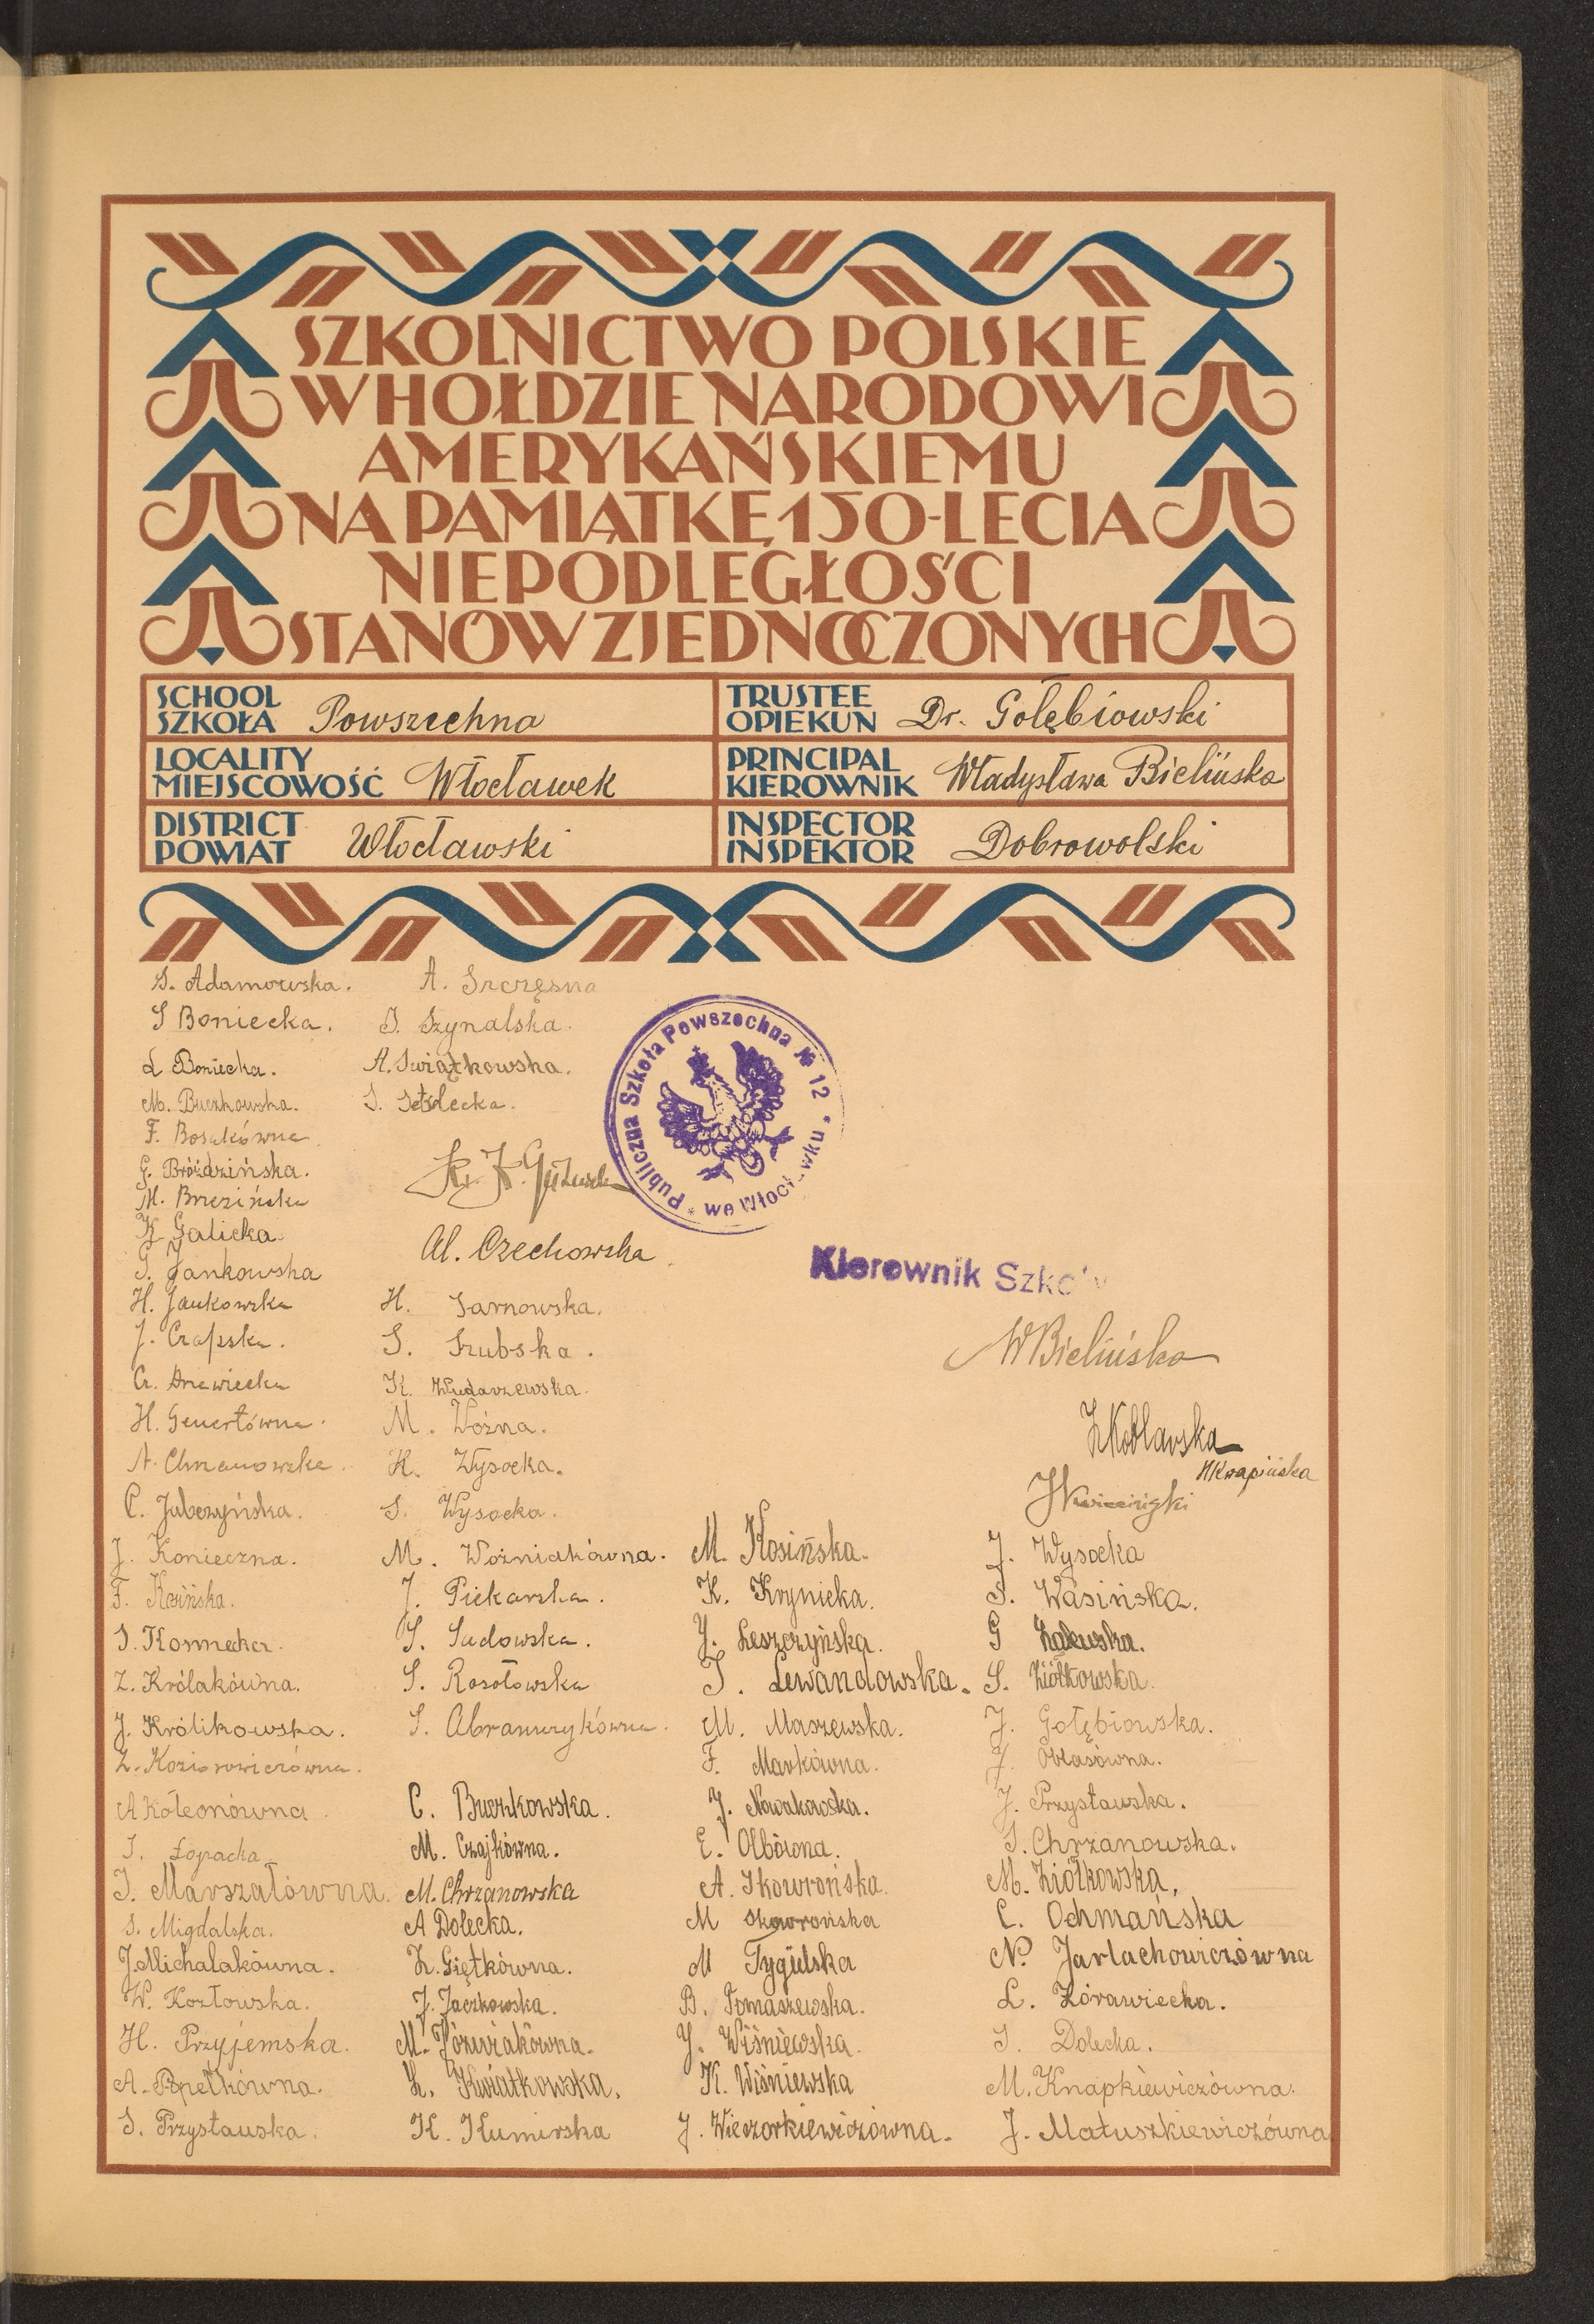 SZKOLNICTWO POLSKIE
W HOŁDZIE NARODOWI
AMERYKAŃSKIEMU
NA PAMIĄTKĘ 150-LECIA
NIEPODLEGŁOŚCI
STANÓW ZJEDNOCZONYCH
SCHOOL
SZKOŁA Powszechna
TRUSTEE
OPIEKUN Dr. Gołębiowski
LOCALITY
MIEJSCOWOŚĆ Włocławek
PRINCIPAL
KIEROWNIK Władysława Bielińska
DISTRICT
POWIAT Włocławski
INSPECTOR
INSPEKTOR Dobrowolski
S. Adamowska.
S Boniecka.
L Boniecka.
M. Buczkowska.
F.
G. Bróździńska.
M. Brzezińska
K Galicka
G. Jankowska
H. Jankowska
J. Czapska.
H.
A.
C. Jabczyńska.
J. Konieczna.
F. Kosińska.
S.
Z. Królakówna.
J. Królikowska.
Z. Koziorowiczówna.
A Koteonówna
S. Łopacka
J. Marszałówna.
S. Migdalska.
J. Michalakówna.
W. Kozłowska.
H. Przyjemska.
A.
S. Przystawska.
A. Szczęsna
J. Szynalska.
A. Swiątkowska.
S.
Al. Czechowska
H. Sarnowska.
S. Szubska.
K. Wludarzewska.
M. Woźna.
H. Wysocka.
S. Wysocka.
M. Woźniakówna.
J. Piekarska.
S. Sadowska.
S. Rosołowska
S.
C. Buczkowska.
M. Czajkówna.
M. Chrzanowska
A Dolecka.
Z. Giętkówna.
J. Jaczkowska.
M. Jóźwiakówna.
Z. Kwiatkowska.
K. Kumirska
Publiczna Szkoła Powszechna № 12
* we Włocławku *
Kierownik Szkoły
W Bielińska
Z Koblawska
H Krapińska
M. Kosińska.
K. Krynicka.
J. Leszczyńska.
J. Lewandowska.
M. Maszewska.
F. Markówna.
J. Nowakowska.
E. Olbówna.
A. Skowrońska.
M Skowrońska
M Tygielska
B. Tomaszewska.
J. Wiśniewska.
K. Wiśniewska
J. Wieczorkiewiczówna.
J. Wysocka
S. Wasińska.
G Zalewska.
S. Ziółkowska.
J. Gołębiowska.
J.
J. Przystawska.
S. Chrzanowska.
M. Ziółkowska.
C. Ochmańska
N. Jarlachowiczówna
L. Żórawiecka.
S. Dolecka.
M. Knapkiewiczówna.
J. Matuszkiewiczówna